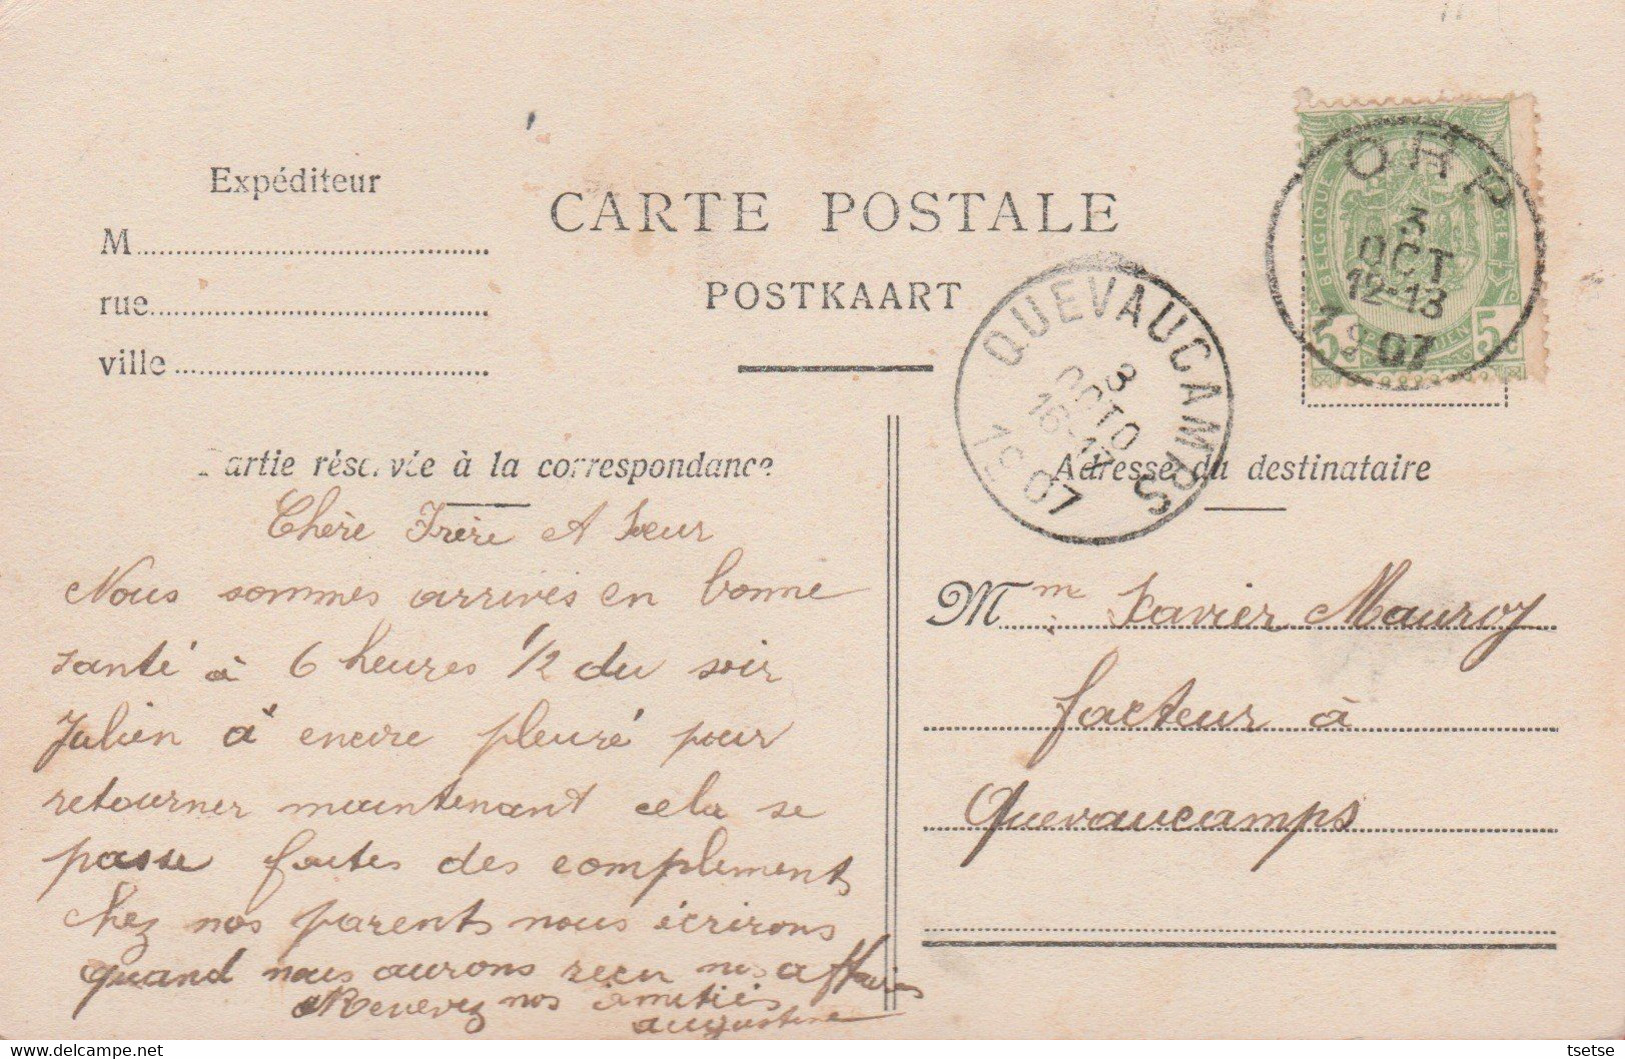 Expéditeur
M
rue
ville
CARTE POSTALE
POSTKAART
ORP
3
OCT
12-13
1907
BELGIQUE
BELGIË
5
5
QUEVAUCAMPS
3
OCTO
16-17
1907
Partie réservée à la correspondance
Chère Frère et Sœur
Nous sommes arrivés en bonne
santé à 6 heures 1/2 du soir
Julien à encire pleuré pour
retourner maintenant cela se
passe faites des complements
chez nos parents nous écrirons
quand nous aurons reçu nos affaires
Recevez nos amitiés
augustine
Adresse du destinataire
Mm Xavier Mauroy
facteur à
Quevaucamps
tsetse
www.delcampe.net